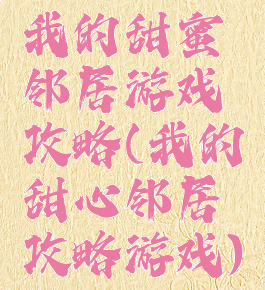 我的甜蜜
邻居游戏
攻略(我的
甜心邻居
攻略游戏)